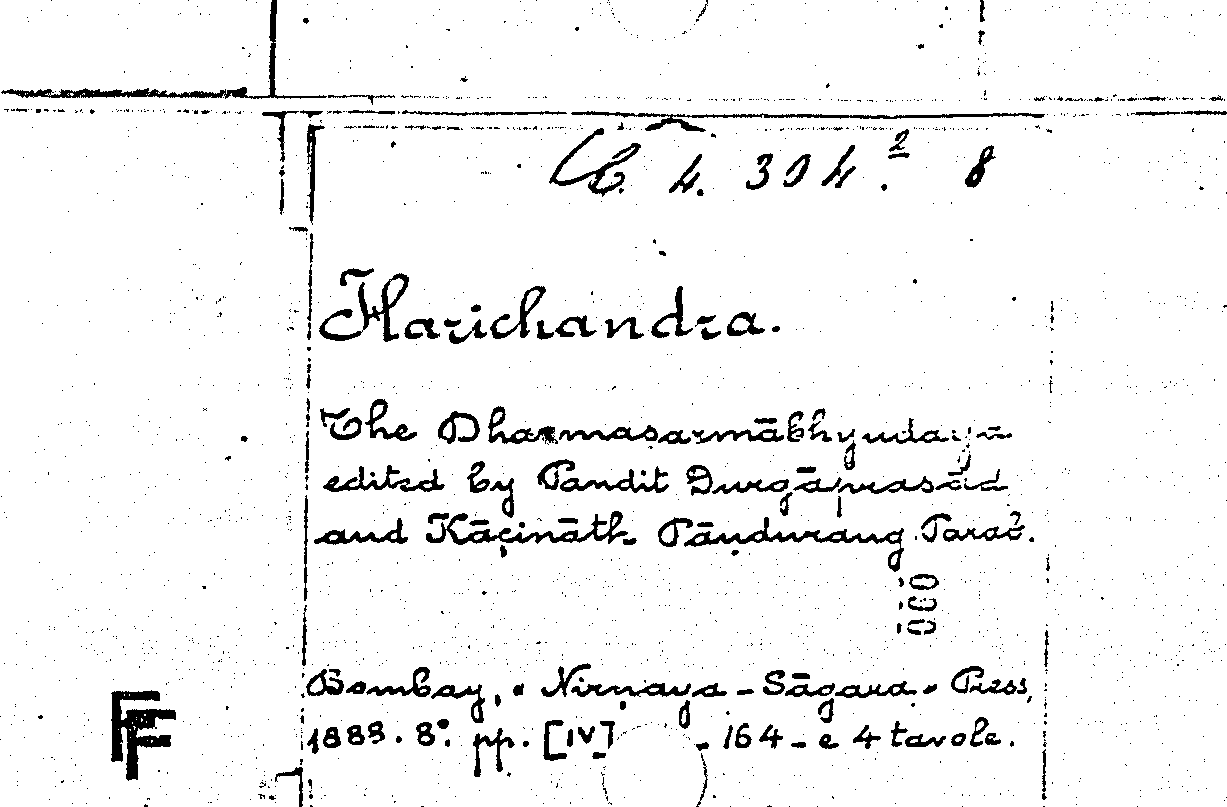 C. 4. 304.² 8
Harichandra.
The Dharmasarmābhyudaya
edited by Pandit Durgāprasād
and Kāçināth Pāṇdurang Parab.
000
Bombay, « Nirṇaya-Sāgara » Press,
1888. 8°. pp. [IV] - 164 - e 4 tavole.
FF